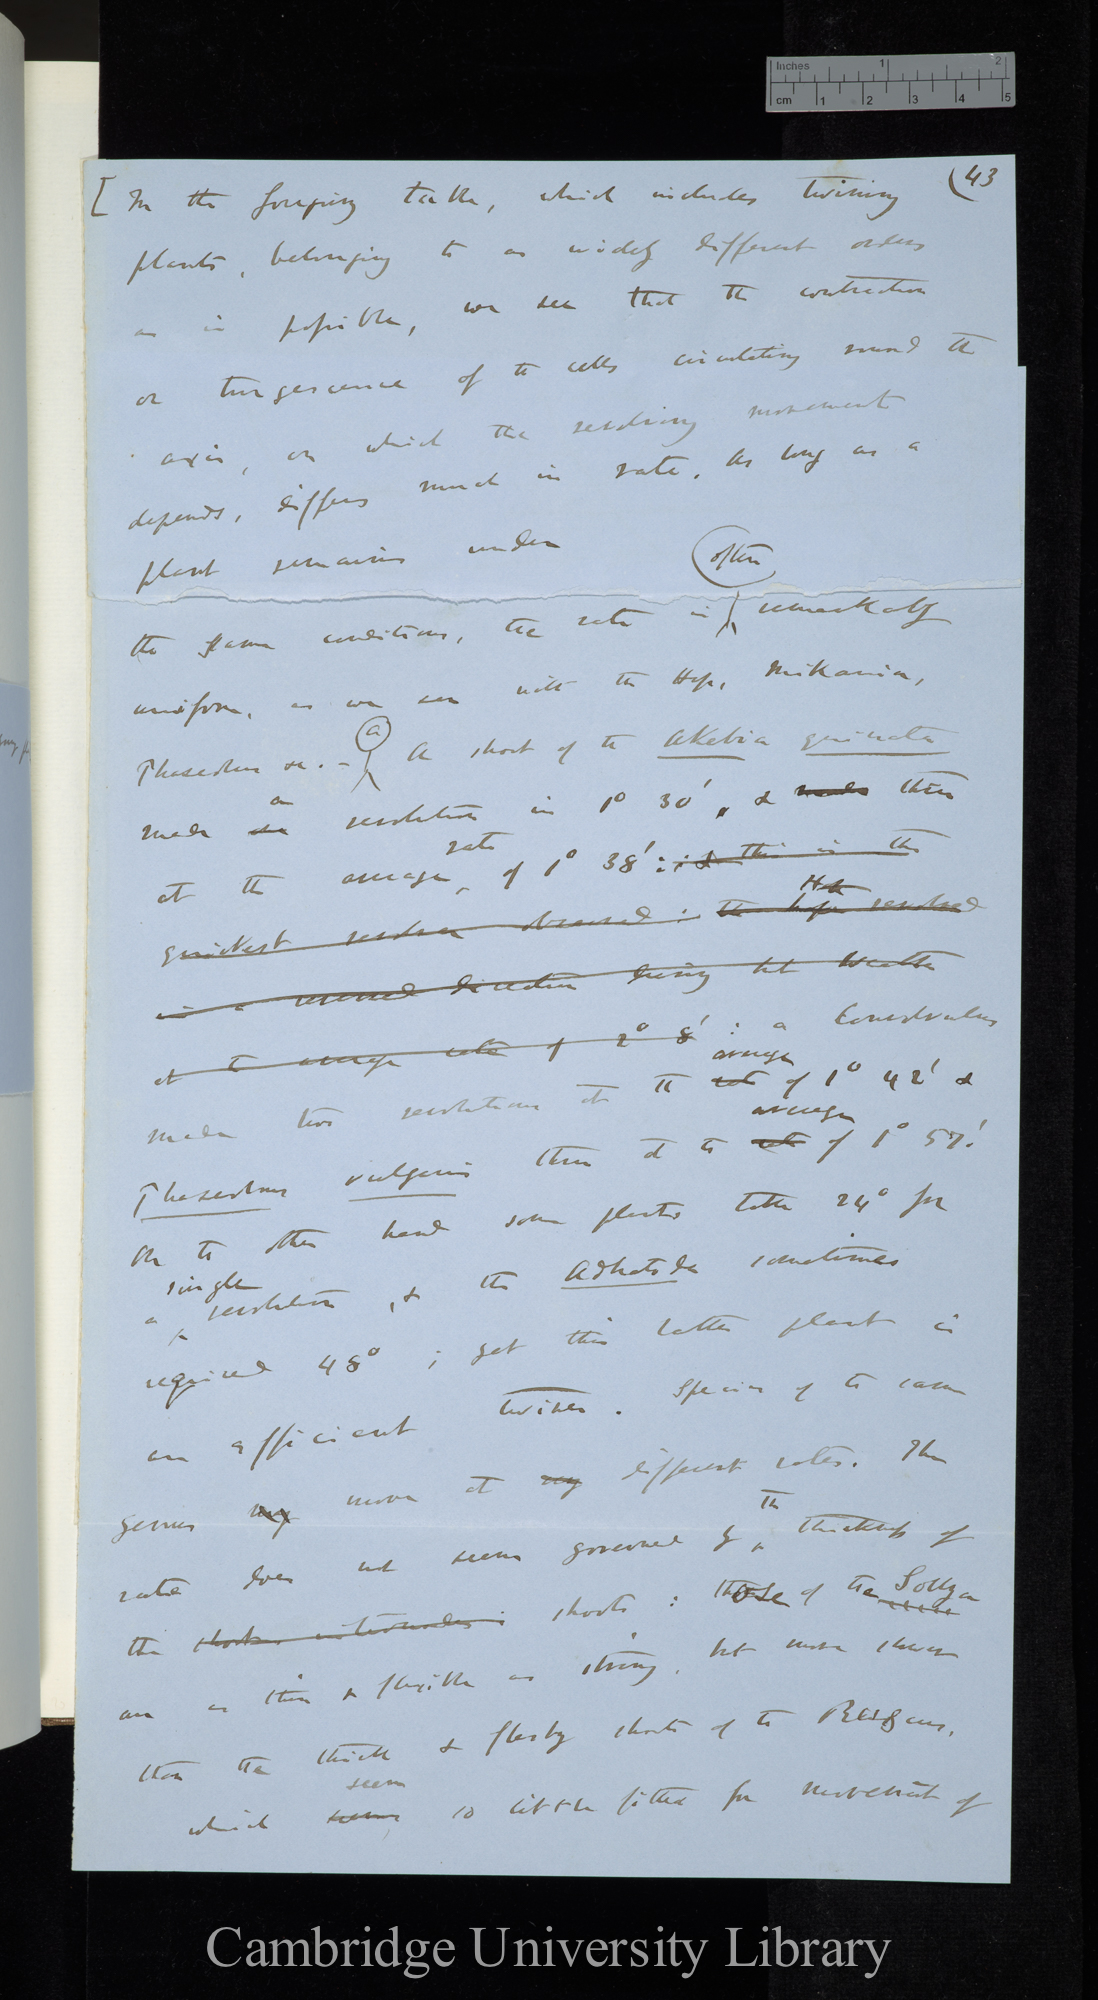 Inches 1 2
cm 1 2 3 4 5
(43
[In the foregoing table, which includes twining
plants, belonging to as widely different orders
as is possible, we see that the contraction
or turgescence of the cells circulating round the
axis, on which the revolving movement
depends, differs much in rate. As long as a
plant remains under
often
the same conditions, the rate is remarkably
uniform, as we see with the Hop, Mikania,
Phaseolus &c. – (a) A shoot of the Akebia quinata
an
made revolution in 1° 30', & made three
rate
at the average, of 1° 38': ; & this is the
Hop
quickest revolver observed : the hop revolved
in a reversed direction during hot weather
at the average rate of 2° 8' : a Convolvulus
average
made two revolutions at the rate of 1° 42' &
average
Phaseolus vulgaris three at the rate of 1° 57'.
On the other hand some plants take 24° for
single
a revolution, & the Adhatoda sometimes
required 48° ; yet this latter plant is
an efficient twiner. Species of the same
genus may move at different rates. The
the
rate does not seem governed by thickness of
the shoots internodes : shoots : those of the Sollya
are as thin & flexible as string, but move slower
than the thick & fleshy shoots of the Ruscus,
seem
which seems so little fitted for movement of
Cambridge University Library